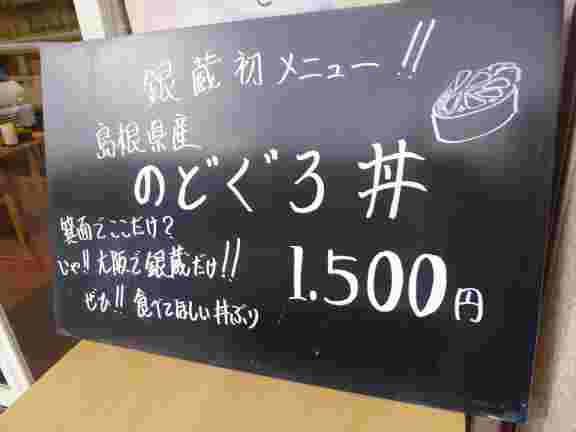 銀蔵初メニュー!!
島根県産
のどぐろ丼
箕面でここだけ?
じゃ!!大阪で銀蔵だけ!!
ぜひ!!食べてほしい丼ぶり
1.500円